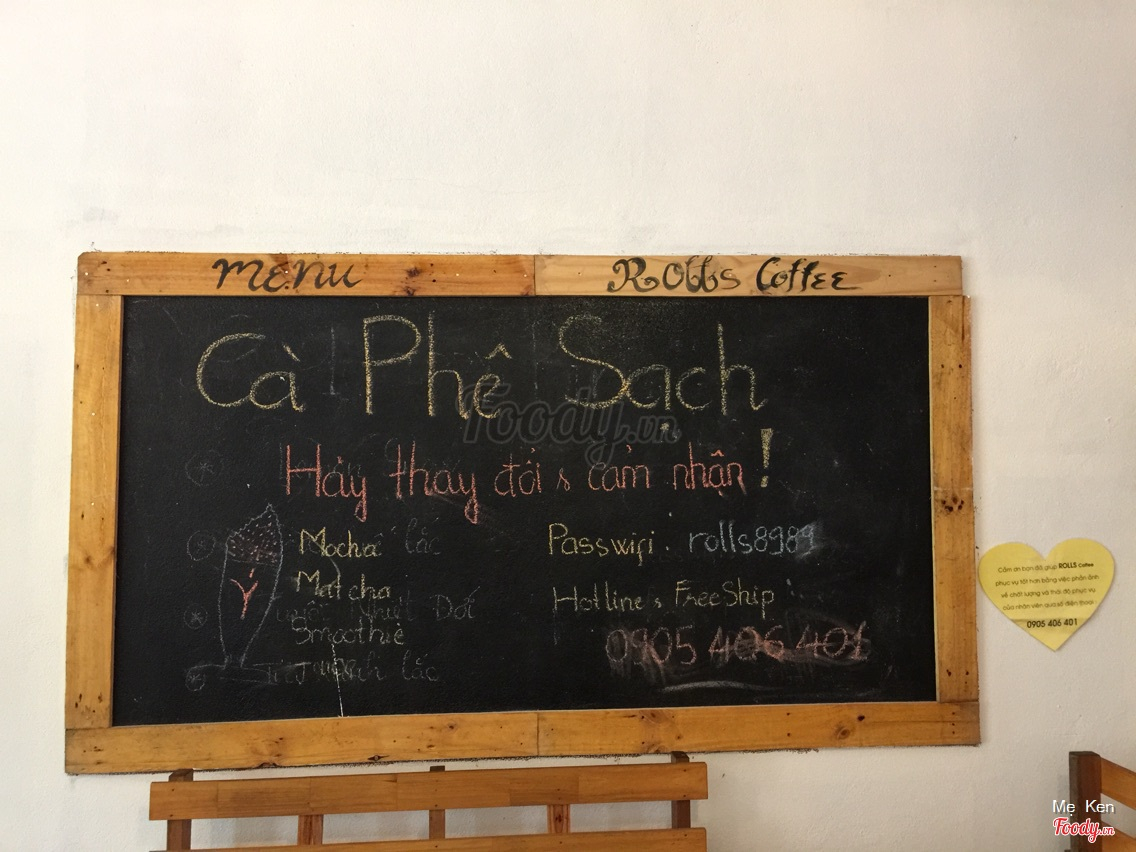 MENU
Rolls Coffee
Cà Phê Sạch
Hảy thay đổi & cảm nhận !
Mocha
lắc
Matcha
Nhiệt Đới
Smoothie
lắc
Passwifi. rolls8989
Hotline & FreeShip :
0905 406 401
Cảm ơn bạn đã giúp ROLLS Coffee
phục vụ tốt hơn bằng việc phản ánh
về chất lượng và thái độ phục vụ
của nhân viên qua số điện thoại
0905 406 401
Foody.vn
Mẹ Ken
Foody.vn